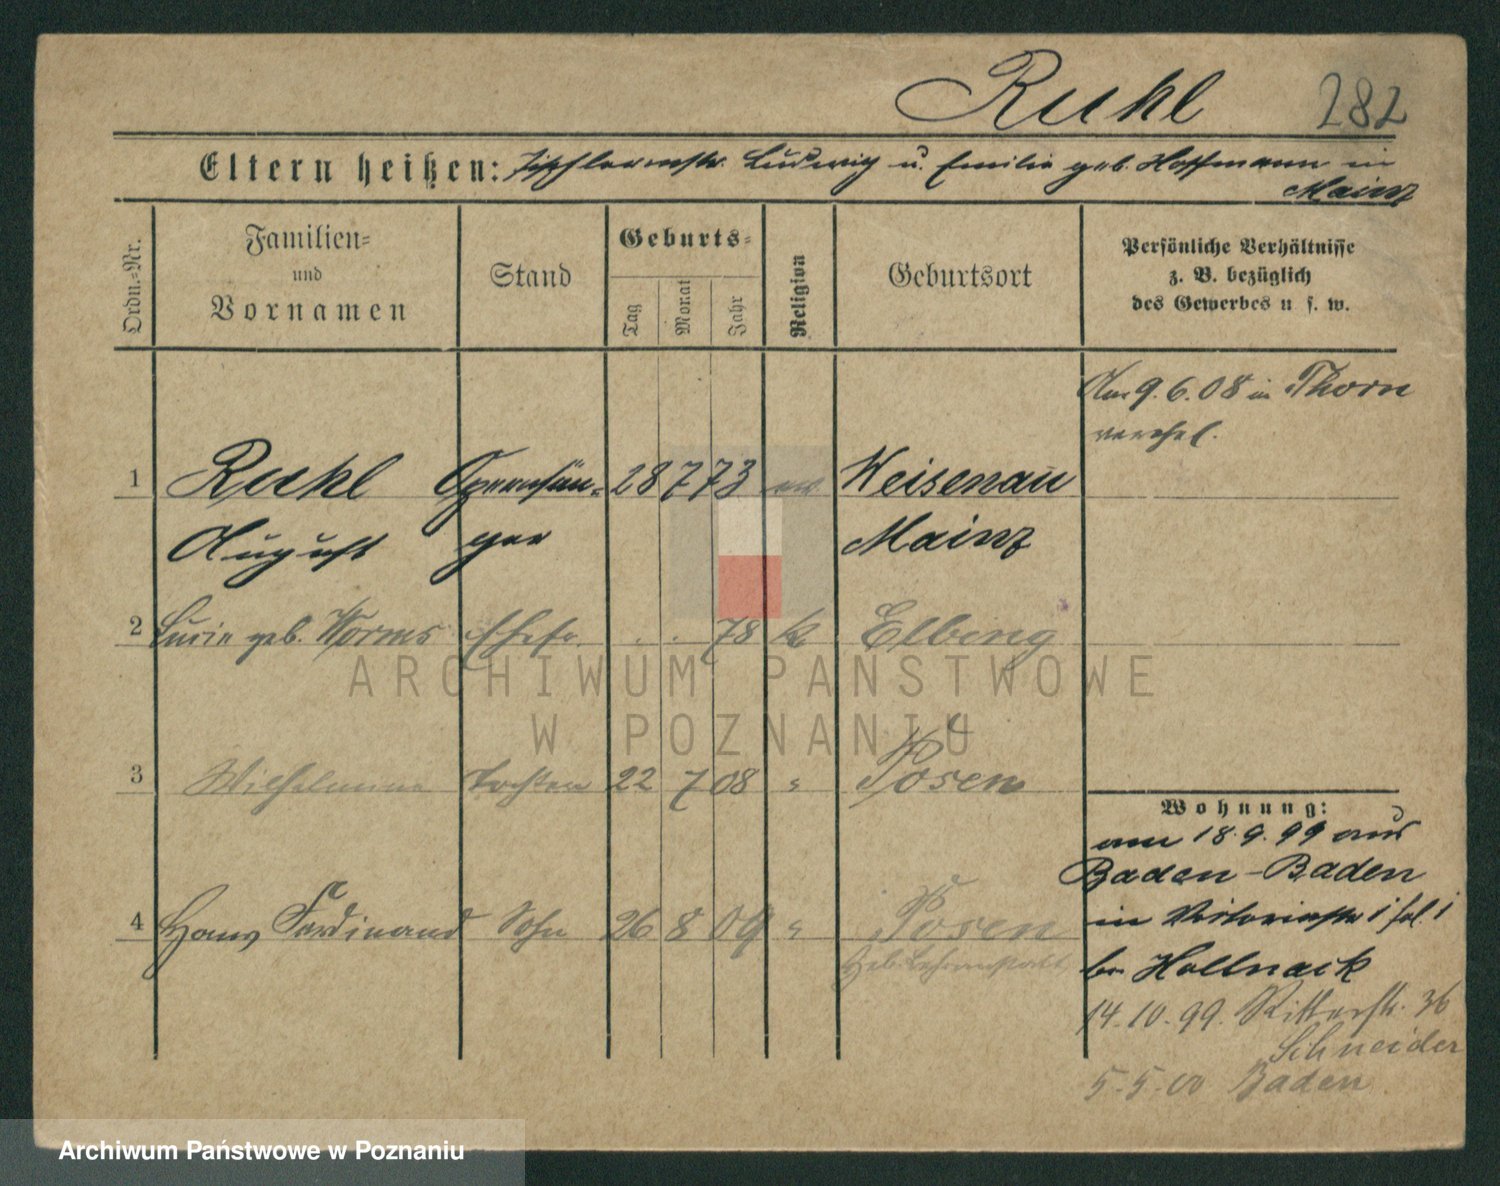 Ruhl 282
Eltern heißen: Tischlermstr. Ludwig u. Emilie geb. Hoffmann in
Mainz
Ordn.=Nr.
Familien=
und
Vornamen
Stand
Geburts=
Tag
Monat
Jahr
Religion
Geburtsort
Persönliche Verhältnisse
z. B. bezüglich
des Gewerbes u s. w.
Am 9.6.08 in Thorn
verehel.
1 Ruhl Opernsän= 28 7 73 ev Weisenau
August ger Mainz
2 Lucie geb. Worms Ehefr. . . 78 k Elbing
3 Wilhelmine Tochter 22 7 08 " Posen
4 Hans Ferdinand Sohn 26 8 09 " Posen
Heb. Lehranstalt
Wohnung:
am 18.9.99 aus
Baden-Baden
in Viktoriastr 1
Hollnack
14.10.99. Ritterstr. 36
Schneider
5.5.00 Baden
ARCHIWUM PAŃSTWOWE
W POZNANIU
Archiwum Państwowe w Poznaniu